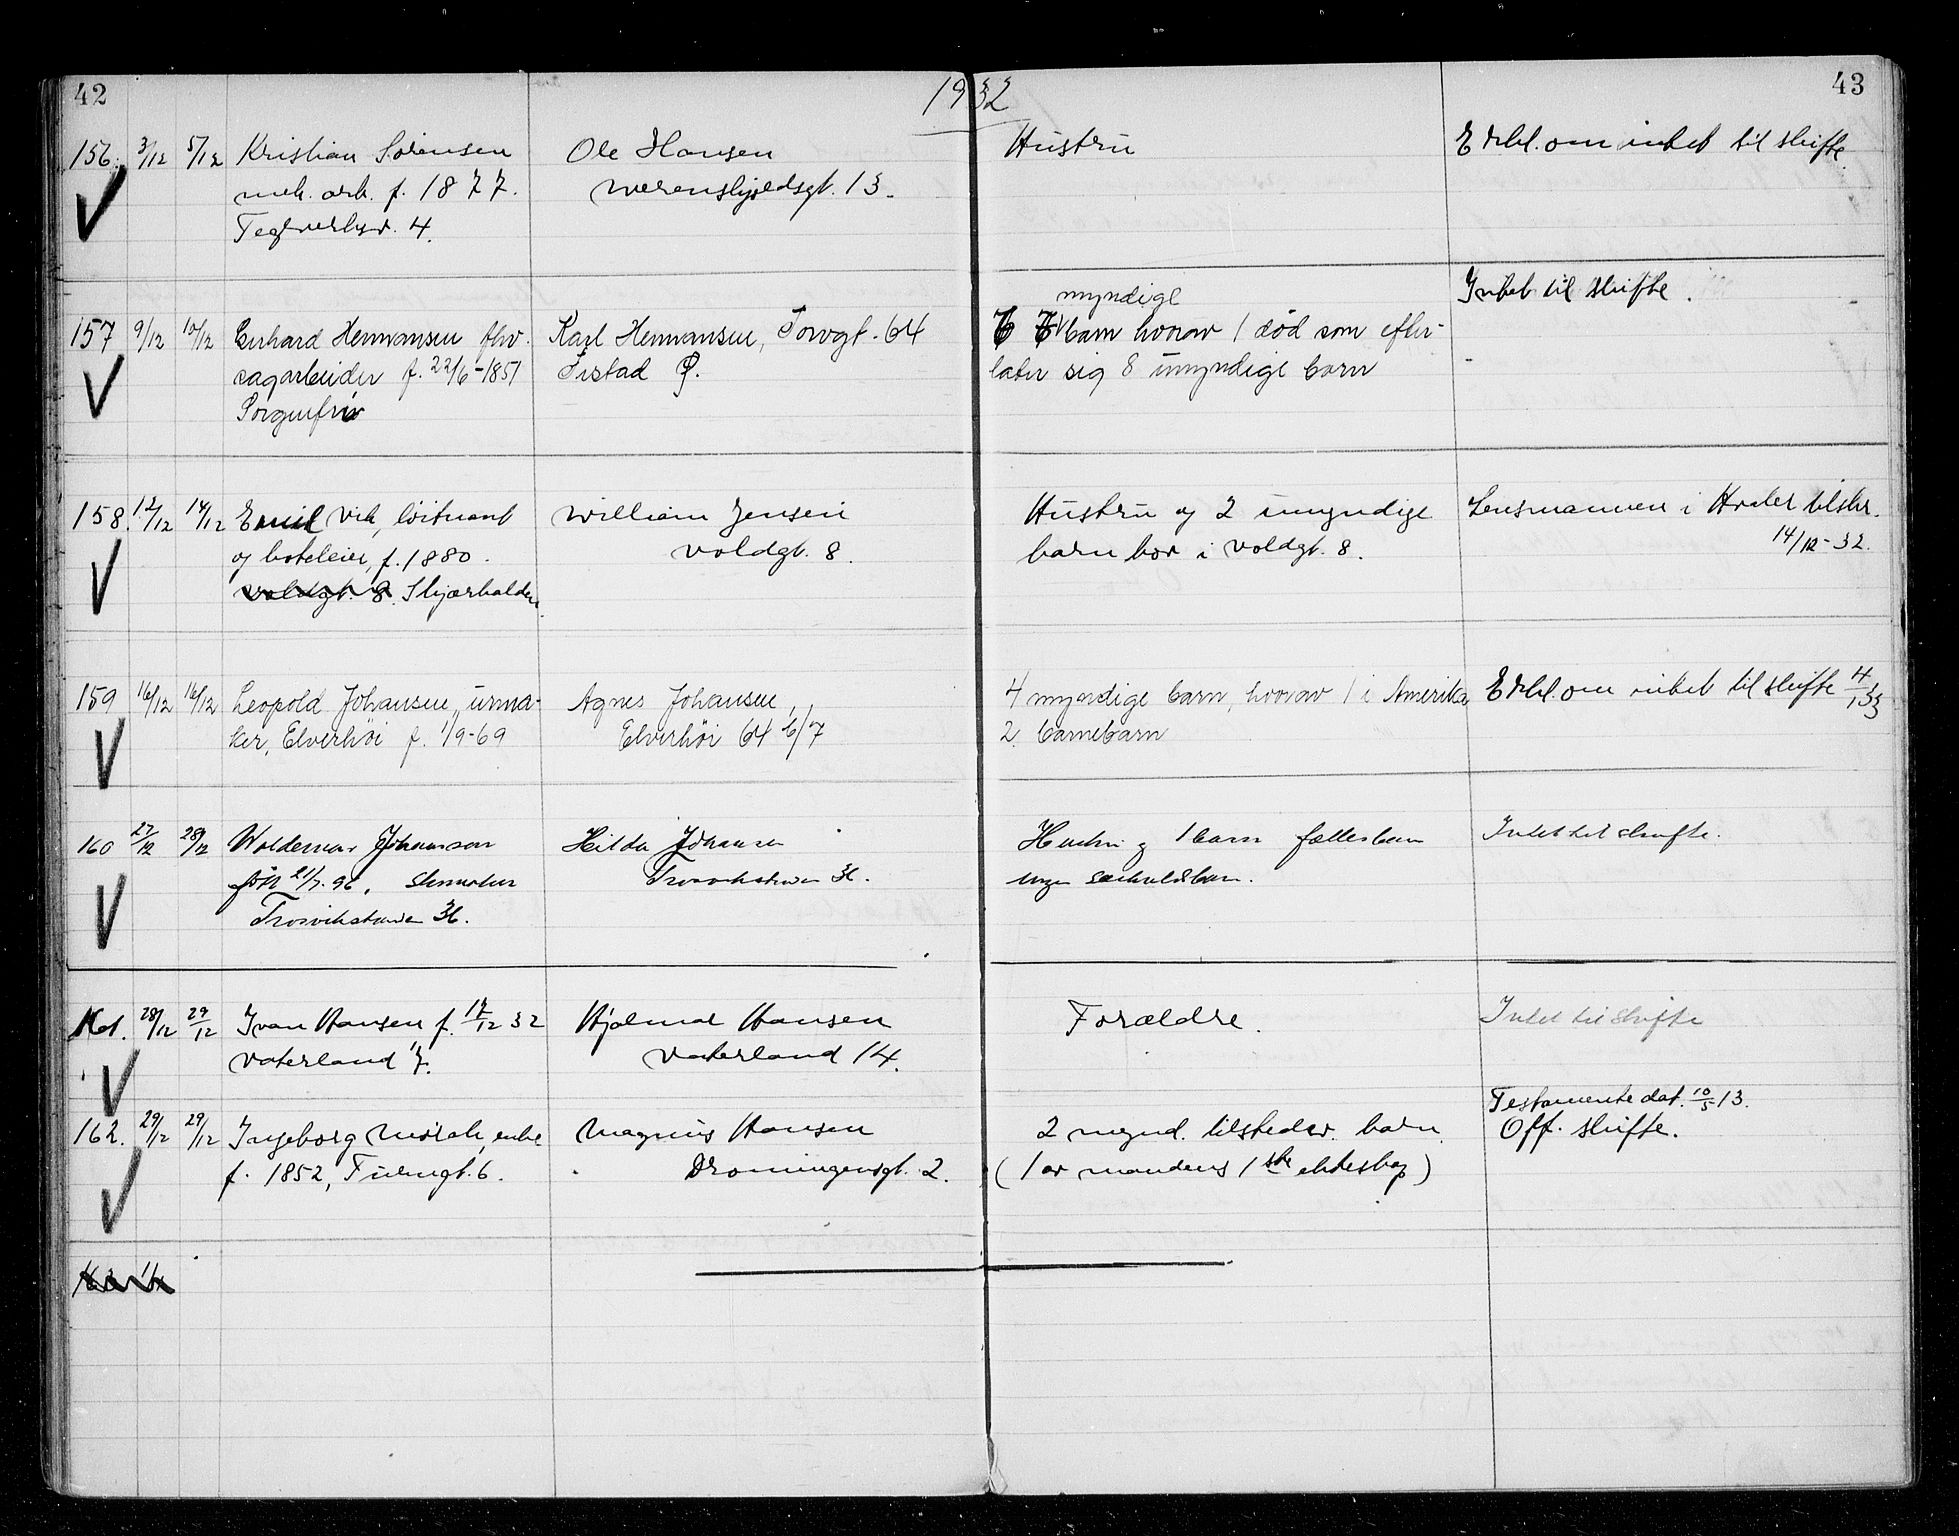 42
1932
43
156. 3/12 5/12 Kristian Sørensen
mek. arb. f. 1877.
Teglverksv. 4.
Ole Hansen
Werenskjoldsgt. 13.
Hustru
Erkl. om intet til skifte.
157 9/12 10/12 Gerhard Hermansen fhv.
sagarbeider f. 22/6-1851
Sorgenfri
Karl Hermansen, Torvgt. 64
F.stad Ø.
myndige
barn hvorav 1 død som efter-
later sig 8 umyndige barn
Intet til skifte.
158. 12/12 14/12 Emil Vik, løitnant
og hoteleier, f. 1880.
Voldgt. 8. Skjærhalden.
William Jensen
Voldgt. 8.
Hustru og 2 umyndige
barn bor i Voldgt. 8.
Lensmannen i Hvaler tilskr.
14/12-32.
159 16/12 16/12 Leopold Johansen, urma-
ker, Elverhöi f. 1/9-69
Agnes Johansen,
Elverhöi 64 b/7
4 myndige barn, hvorav 1 i Amerika
2 barnebarn
Erkl. om intet til skifte 4/1 33
160 27/12 28/12 Woldemar Johansen
født 21/7. 96.
Trosvikstranden 36.
Hilda Johansen
Trosvikstranden 36.
Hustru og 1 barn fællesbarn
ingen særkuldsbarn.
Intet til skifte.
161. 28/12 29/12 Ivan Hansen, f. 17/12 32
Vaterland 7.
Hjalmar Hansen
Vaterland 14.
Forældre.
Intet til skifte
162. 29/12 29/12 Ingeborg Mörch, enke
f. 1852, Furugt. 6.
Magnus Hansen
Dronningensgt. 2.
2 mynd. tilstedev. barn
(1 av mandens 1ste ekteskap)
Testamente dat. 10/5 13.
Off. skifte.